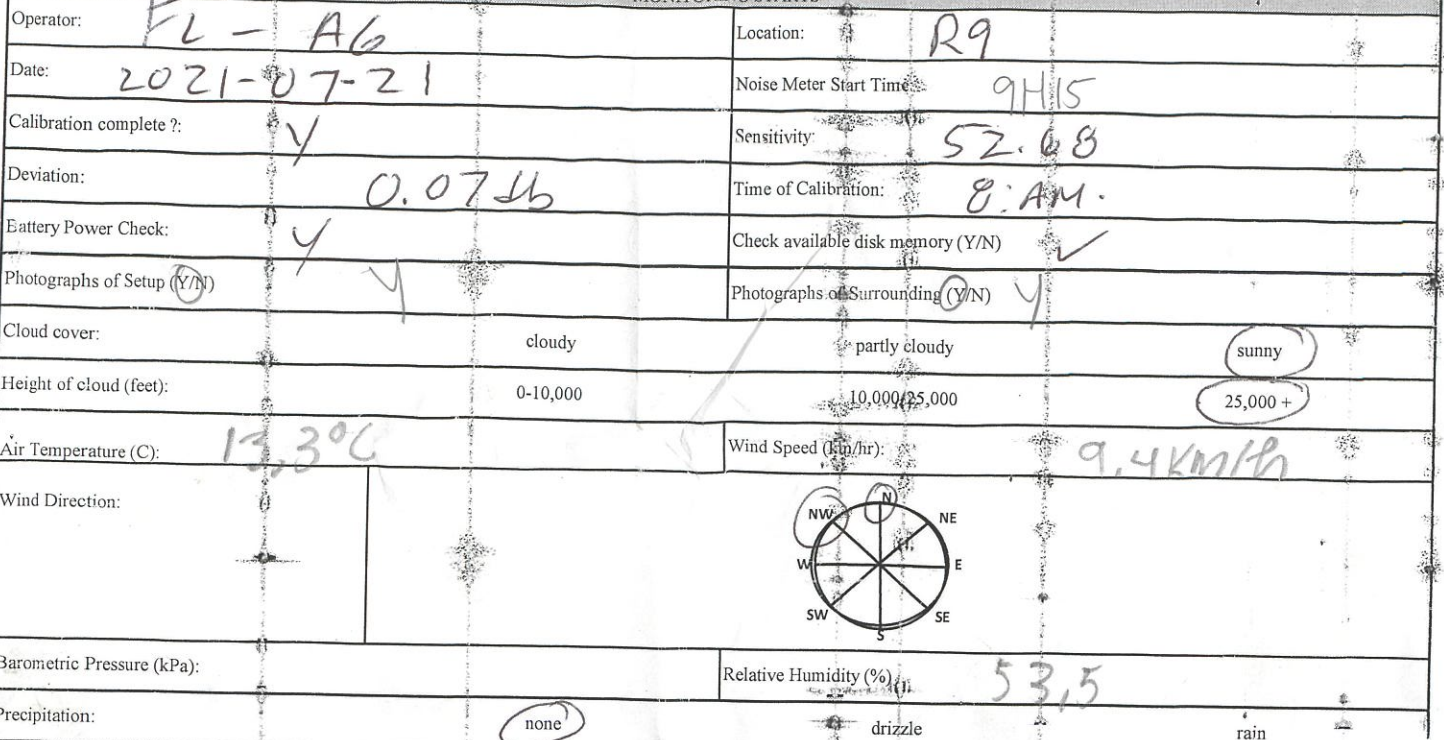 Operator: FL - AG Location: R9
Date: 2021-07-21 Noise Meter Start Time: 9H15
Calibration complete ?: Y Sensitivity: 52.68
Deviation: 0.07 db Time of Calibration: 8:AM.
Battery Power Check: Y Check available disk memory (Y/N) ✓
Photographs of Setup (Y/N) Y Photographs of Surrounding (Y/N) Y
Cloud cover: cloudy partly cloudy sunny
Height of cloud (feet): 0-10,000 10,000/25,000 25,000 +
Air Temperature (C): 13,3°C Wind Speed (km/hr): 9,4 Km/h
Wind Direction:
N
NW NE
W E
SW SE
S
Barometric Pressure (kPa): Relative Humidity (%) 53,5
Precipitation: none drizzle rain